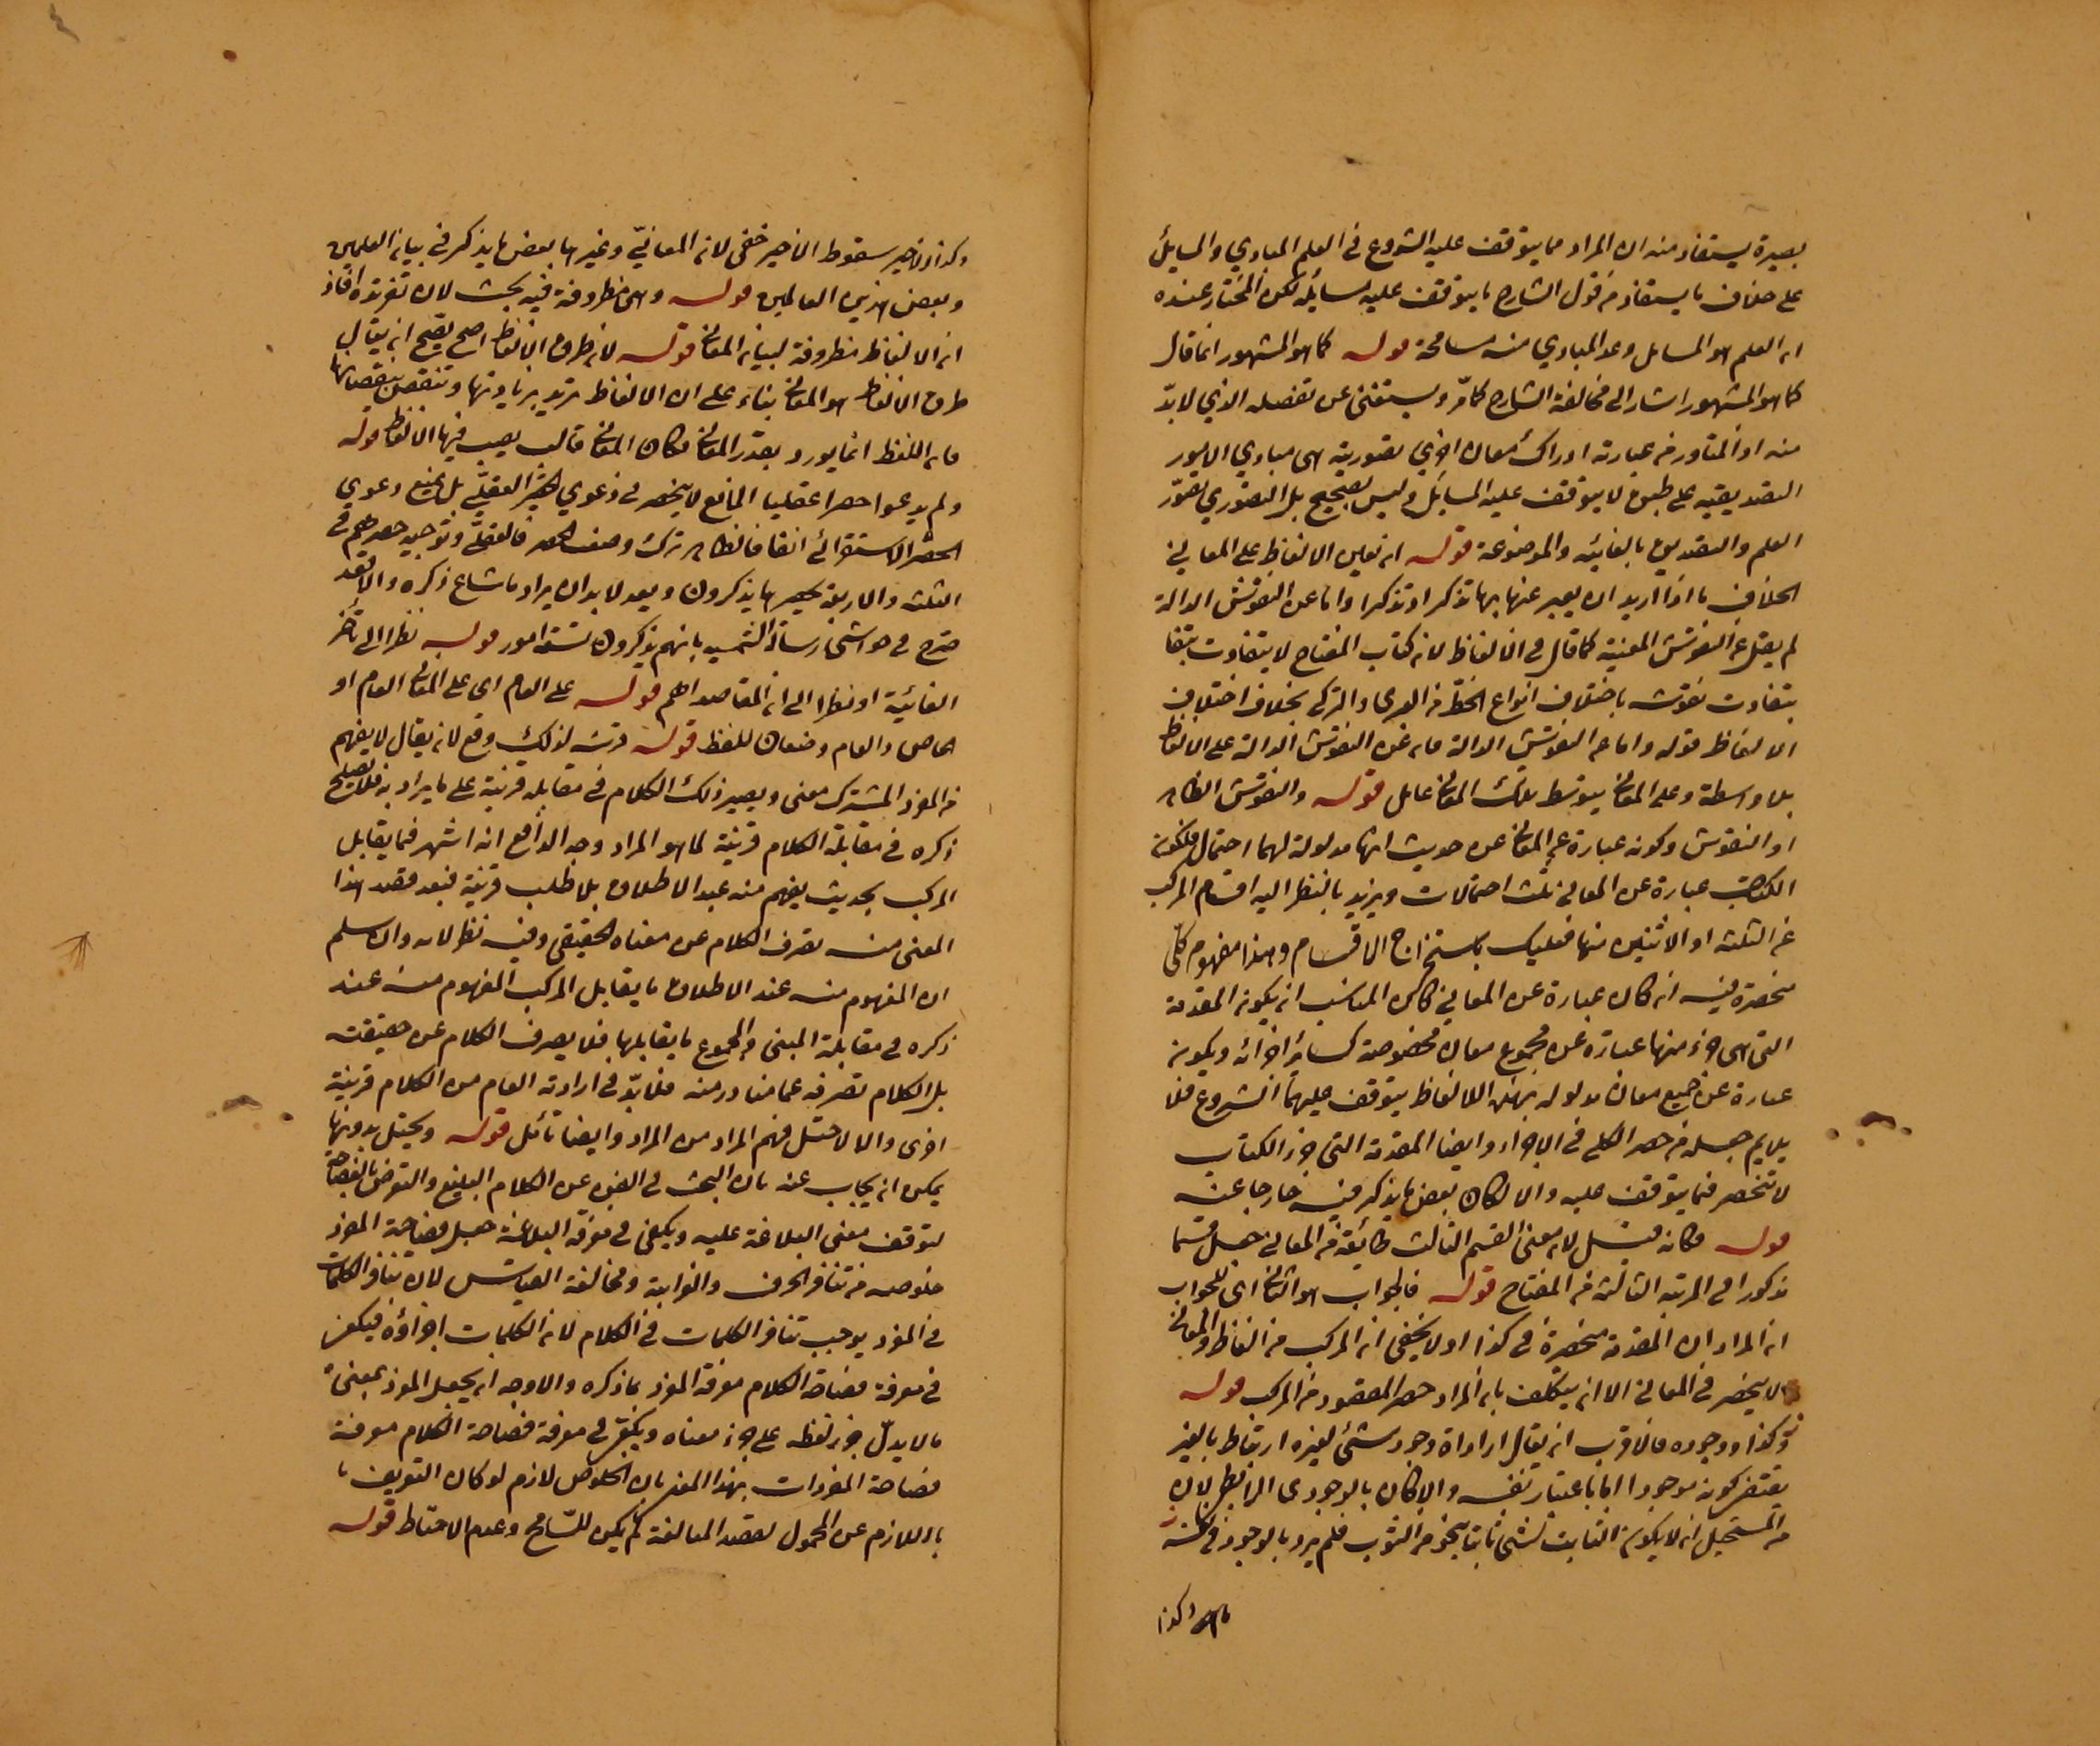 بصيرة يستفاد منه ان المراد مما يتوقف عليه الشروع في العلم المبادي والمسايل
على خلاف ما يستفاد من قول الشارح ما يتوقف عليه مسائله لكن المختار عنده
ان العلم هو المسايل وعد المبادي منه مسامحة قوله كما هو المشهور انما قال
كما هو المشهور اشار الى مخالفة الشارح كما مرّ ويستغنى عن تفصله الذي لا بدّ
منه اذ المتبادر من عبارته ادراك معان اخرى تصورية هى مبادي الامور
التصديقية على طبق لا يتوقف عليه المسايل وليس بصحيح بل التصوري تصوّر
العلم والتصديق بالغائيه والموضوعة قوله ان تعين الالفاظ على المعاني
الخلاف ما اذا اريد ان يعبر عنها بها تذكرا وتذكيرا واما عن النقوش الدالة
لم يقل عن النقوش المعينة كما قال في الالفاظ لان كتاب المفتاح لا يتفاوت بتفا
بتفاوت نقوشه باختلاف انواع الخط من العربى والتركى بخلاف اختلاف
الالفاظ قوله واما عن النقوش الدالة فان عن النقوش الدالة على الالفاظ
بلا واسطة وعلى المعاني بتوسط تلك المعاني عامل قوله والنقوش الظاهر
او النقوش وكونه عبارة عن المعاني من حيث انها مدلولة لهما احتمال فلكون
الكتاب عبارة عن المعاني ثلث احتمالات ويزيد بالنظر اليه اقسام المركب
من الثلثه او الاثنين منها فعليك باستخراج الاقسام وهذا مفهوم كلى
منحصرة فيه ان كان عبارة عن المعاني كان المناسب ان يكون المقدمة
التى هى جزء منها عبارة عن مجموع معان مخصوصة كسائر اجزائه وبكونه
عبارة عن جميع معان مدلولة بهذه الالفاظ يتوقف عليها الشروع فلا
يلايم جعله من حصر الكلى في الاجزاء وايضا المقدمة التى جزء الكتاب
لا تنحصر فيما يتوقف عليه والا لكان بعض ما يذكر فيه خارجا عنه
قوله فكانه قيل لان معنى القسم الثالث طائفة من المعاني جعل قسما
مذكورا في المرتبة الثالثة من المفتاح قوله فالجواب هو الثاني اى الجواب
ان المراد ان المقدمة منحصرة في كذا اولا يخفى ان المركب من الفاظ والمعاني
لا ينحصر في المعاني الا ان يتكلف بان المراد حصر المقصود من المركب قوله
وكذا ووجوده فالاقرب ان يقال اراداة وجود شئ لغيره ارتباط بالغير
يقتضي كونه موجودا اما باعتبار نفسه والامكان بالوجودى الرابطى لان
من المستحيل ان لا يكون الثابت لشئ ثابتا بنحو من الثبوت فلم يرد بالوجود في نفسه
وكذا
وكذا تاخير سقوط الاخير خفى لان المعاني وغيرها بعض ما يذكر في بيان العلمين
وبعض هذين العالمين قوله وهى مظروفة فيه بحث لان تفرقه افاد
ان الالفاظ مظروفة لبيان المعاني قوله لان ظرف الالفاظ اصح يصح ان يقال
ظرف الالفاظ هو المعاني بناء على ان الالفاظ تزيد بزيادتها وتنقص بنقصانها
فان اللفظ انما يورد بقدر المعاني فكان المعاني قالب يصب فيها الالفاظ قوله
ولم يدعوا حصرا عقليا المانع لا ينحصر في دعوى الحصر العقلي بل يمنع دعوى
الحصر الاستقرائي ايضا فالظاهر ترك وصف الحصر فالعقلى وتوجيه حصرهم في
الثلثه والاربعة بحصر ما يذكرون وبعد لا بد ان يراد ما شاع ذكره والا فقد
صرح في حواشى رسالة الشمسيه بانهم يذكرون تسعة امور قوله نظرا الى تاخر
الغائية او نظرا الى ان المقاصد اهم قوله على العام اى على المعاني العام او
الخاص والعام وضعان للفظ قوله قرينه لذلك وقع لان يقال لا يفهم
من المفرد المشترك معنى ويصير ذلك الكلام في مقابله قرينة على ما يراد به فلا يصلح
ذكره في مقابلة الكلام قرينة لما هو المراد وجه الدافع انه اشتهر فيما يقابل
المركب بحيث يفهم منه عند الاطلاق بلا طلب قرينة فبعد قصد هذا
المعنى منه تصرف الكلام عن معناه الحقيقى وفيه نظر لانه وان سلم
ان المفهوم منه عند الاطلاق ما يقابل المركب المفهوم منه عند
ذكره في مقابلة المبنى والمجموع ما يقابلها فلا يصرف الكلام عن حقيقته
بل الكلام تصرفه عما متبادر منه فلا بدّ في ارادته العام من الكلام قرينة
اخرى والا لاختل فهم المراد من المراد وايضا تأمل قوله ويحتمل بدونها
يمكن ان يجاب عنه بان البحث في الفن عن الكلام البليغ والتعرض بالفصاحة
لتوقف معنى البلاغة عليه ويكفى في معرفة البلاغة جعل فصاحة المفرد
خلوصه من تنافر الحروف والغرابة ومخالفة القياس لان تنافر الكلمات
في المفرد يوجب تنافر الكلمات في الكلام لان الكلمات اجزاؤه فيكفى
في معرفة فصاحة الكلام معرفة المفرد بما ذكره والاوجه ان يجعل المفرد بمعنى
ما لا يدلّ جزء لفظه على جزء معناه ويكفى في معرفة فصاحة الكلام معرفة
فصاحة المفردات بهذا المعنى بان الخلوص لازم لو كان التعريف
باللازم عن المحمول لقصد المبالغة لم يكن للتسامح وعدم الاحتياط قوله